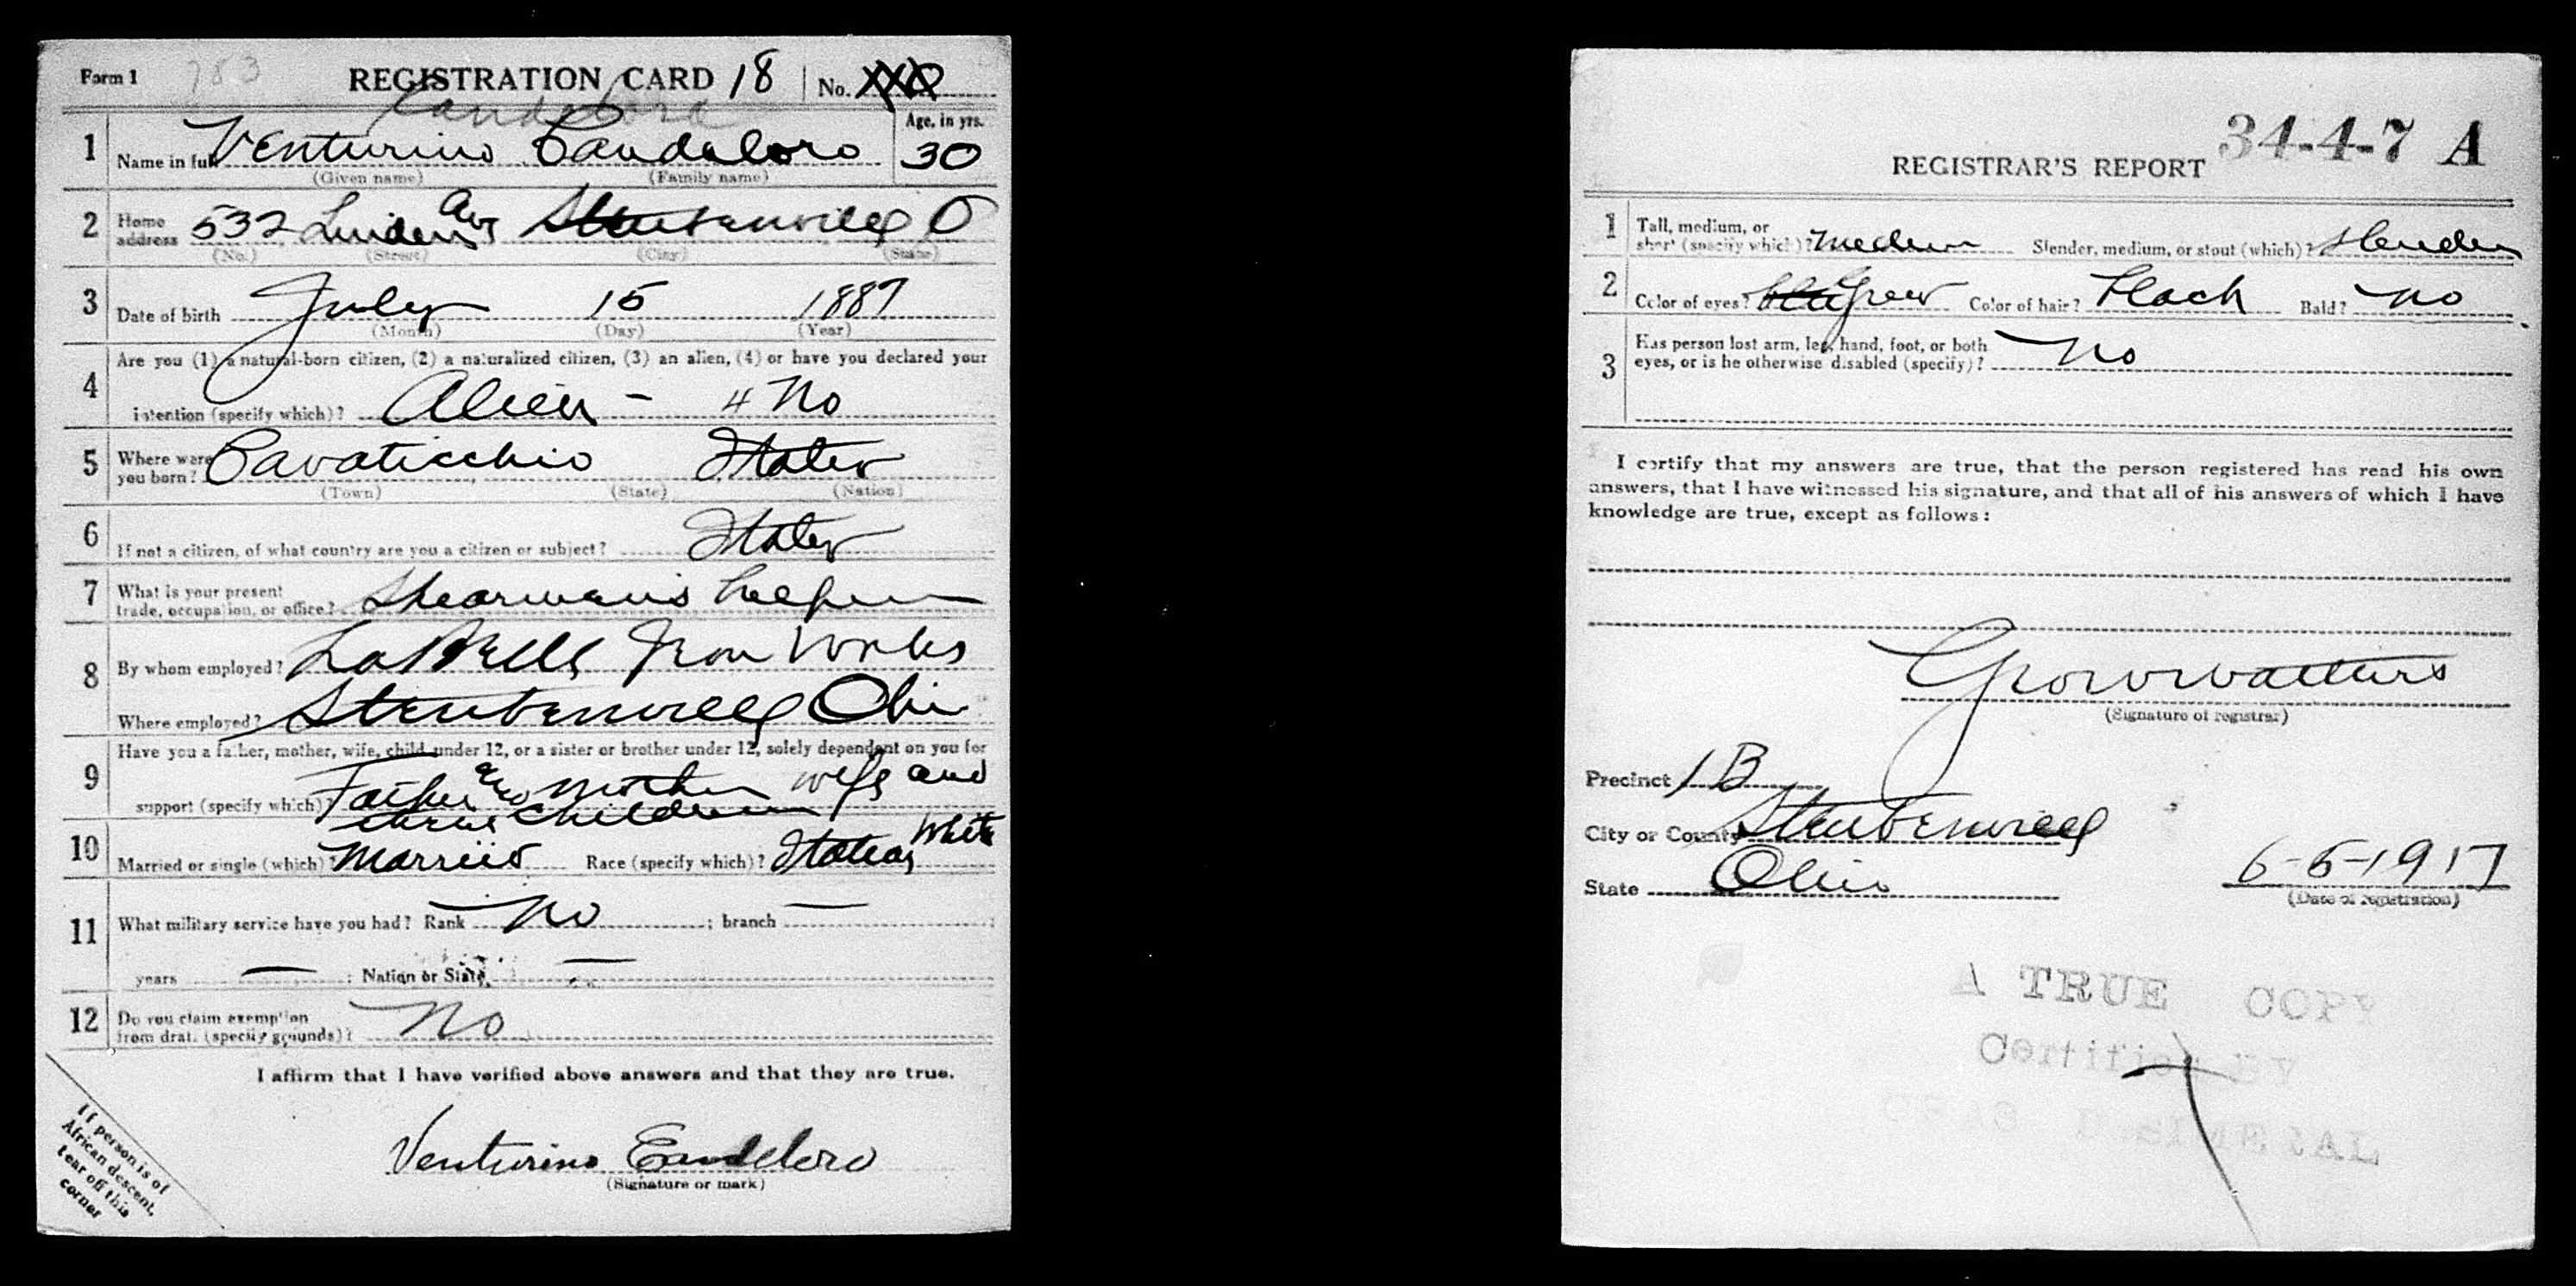 Form 1 783 REGISTRATION CARD 18 No.
Candelore
1 Name in full Venturino Candeloro Age, in yrs. 30
(Given name) (Family name)
2 Home address 532 Linden Ave Steubenville O
(No.) (Street) (City) (State)
3 Date of birth July 15 1887
(Month) (Day) (Year)
4 Are you (1) a natural-born citizen, (2) a naturalized citizen, (3) an alien, (4) or have you declared your
intention (specify which)? Alien - 4 No
5 Where were you born? Pavaticchio Italy
(Town) (State) (Nation)
6 If not a citizen, of what country are you a citizen or subject? Italy
7 What is your present trade, occupation, or office? Shearman's helper
8 By whom employed? LaBelle Iron Works
Where employed? Steubenville Ohio
9 Have you a father, mother, wife, child under 12, or a sister or brother under 12, solely dependent on you for
support (specify which)? Father and mother wife and
three children
10 Married or single (which)? Married Race (specify which)? Italian White
11 What military service have you had? Rank No ; branch — ;
years — ; Nation or State —
12 Do you claim exemption from draft (specify grounds)? No
I affirm that I have verified above answers and that they are true.
Venturino Candeloro
(Signature or mark)
If person is of
African descent,
tear off this
corner
34-4-7 A
REGISTRAR'S REPORT
1 Tall, medium, or short (specify which)? Medium Slender, medium, or stout (which)? Slender
2 Color of eyes? Grey Color of hair? Black Bald? No
3 Has person lost arm, leg, hand, foot, or both
eyes, or is he otherwise disabled (specify)? No
I certify that my answers are true, that the person registered has read his own
answers, that I have witnessed his signature, and that all of his answers of which I have
knowledge are true, except as follows:
(Signature of registrar)
Precinct 1 B
City or County Steubenville
State Ohio 6-5-1917
(Date of registration)
A TRUE COPY
Certified BY